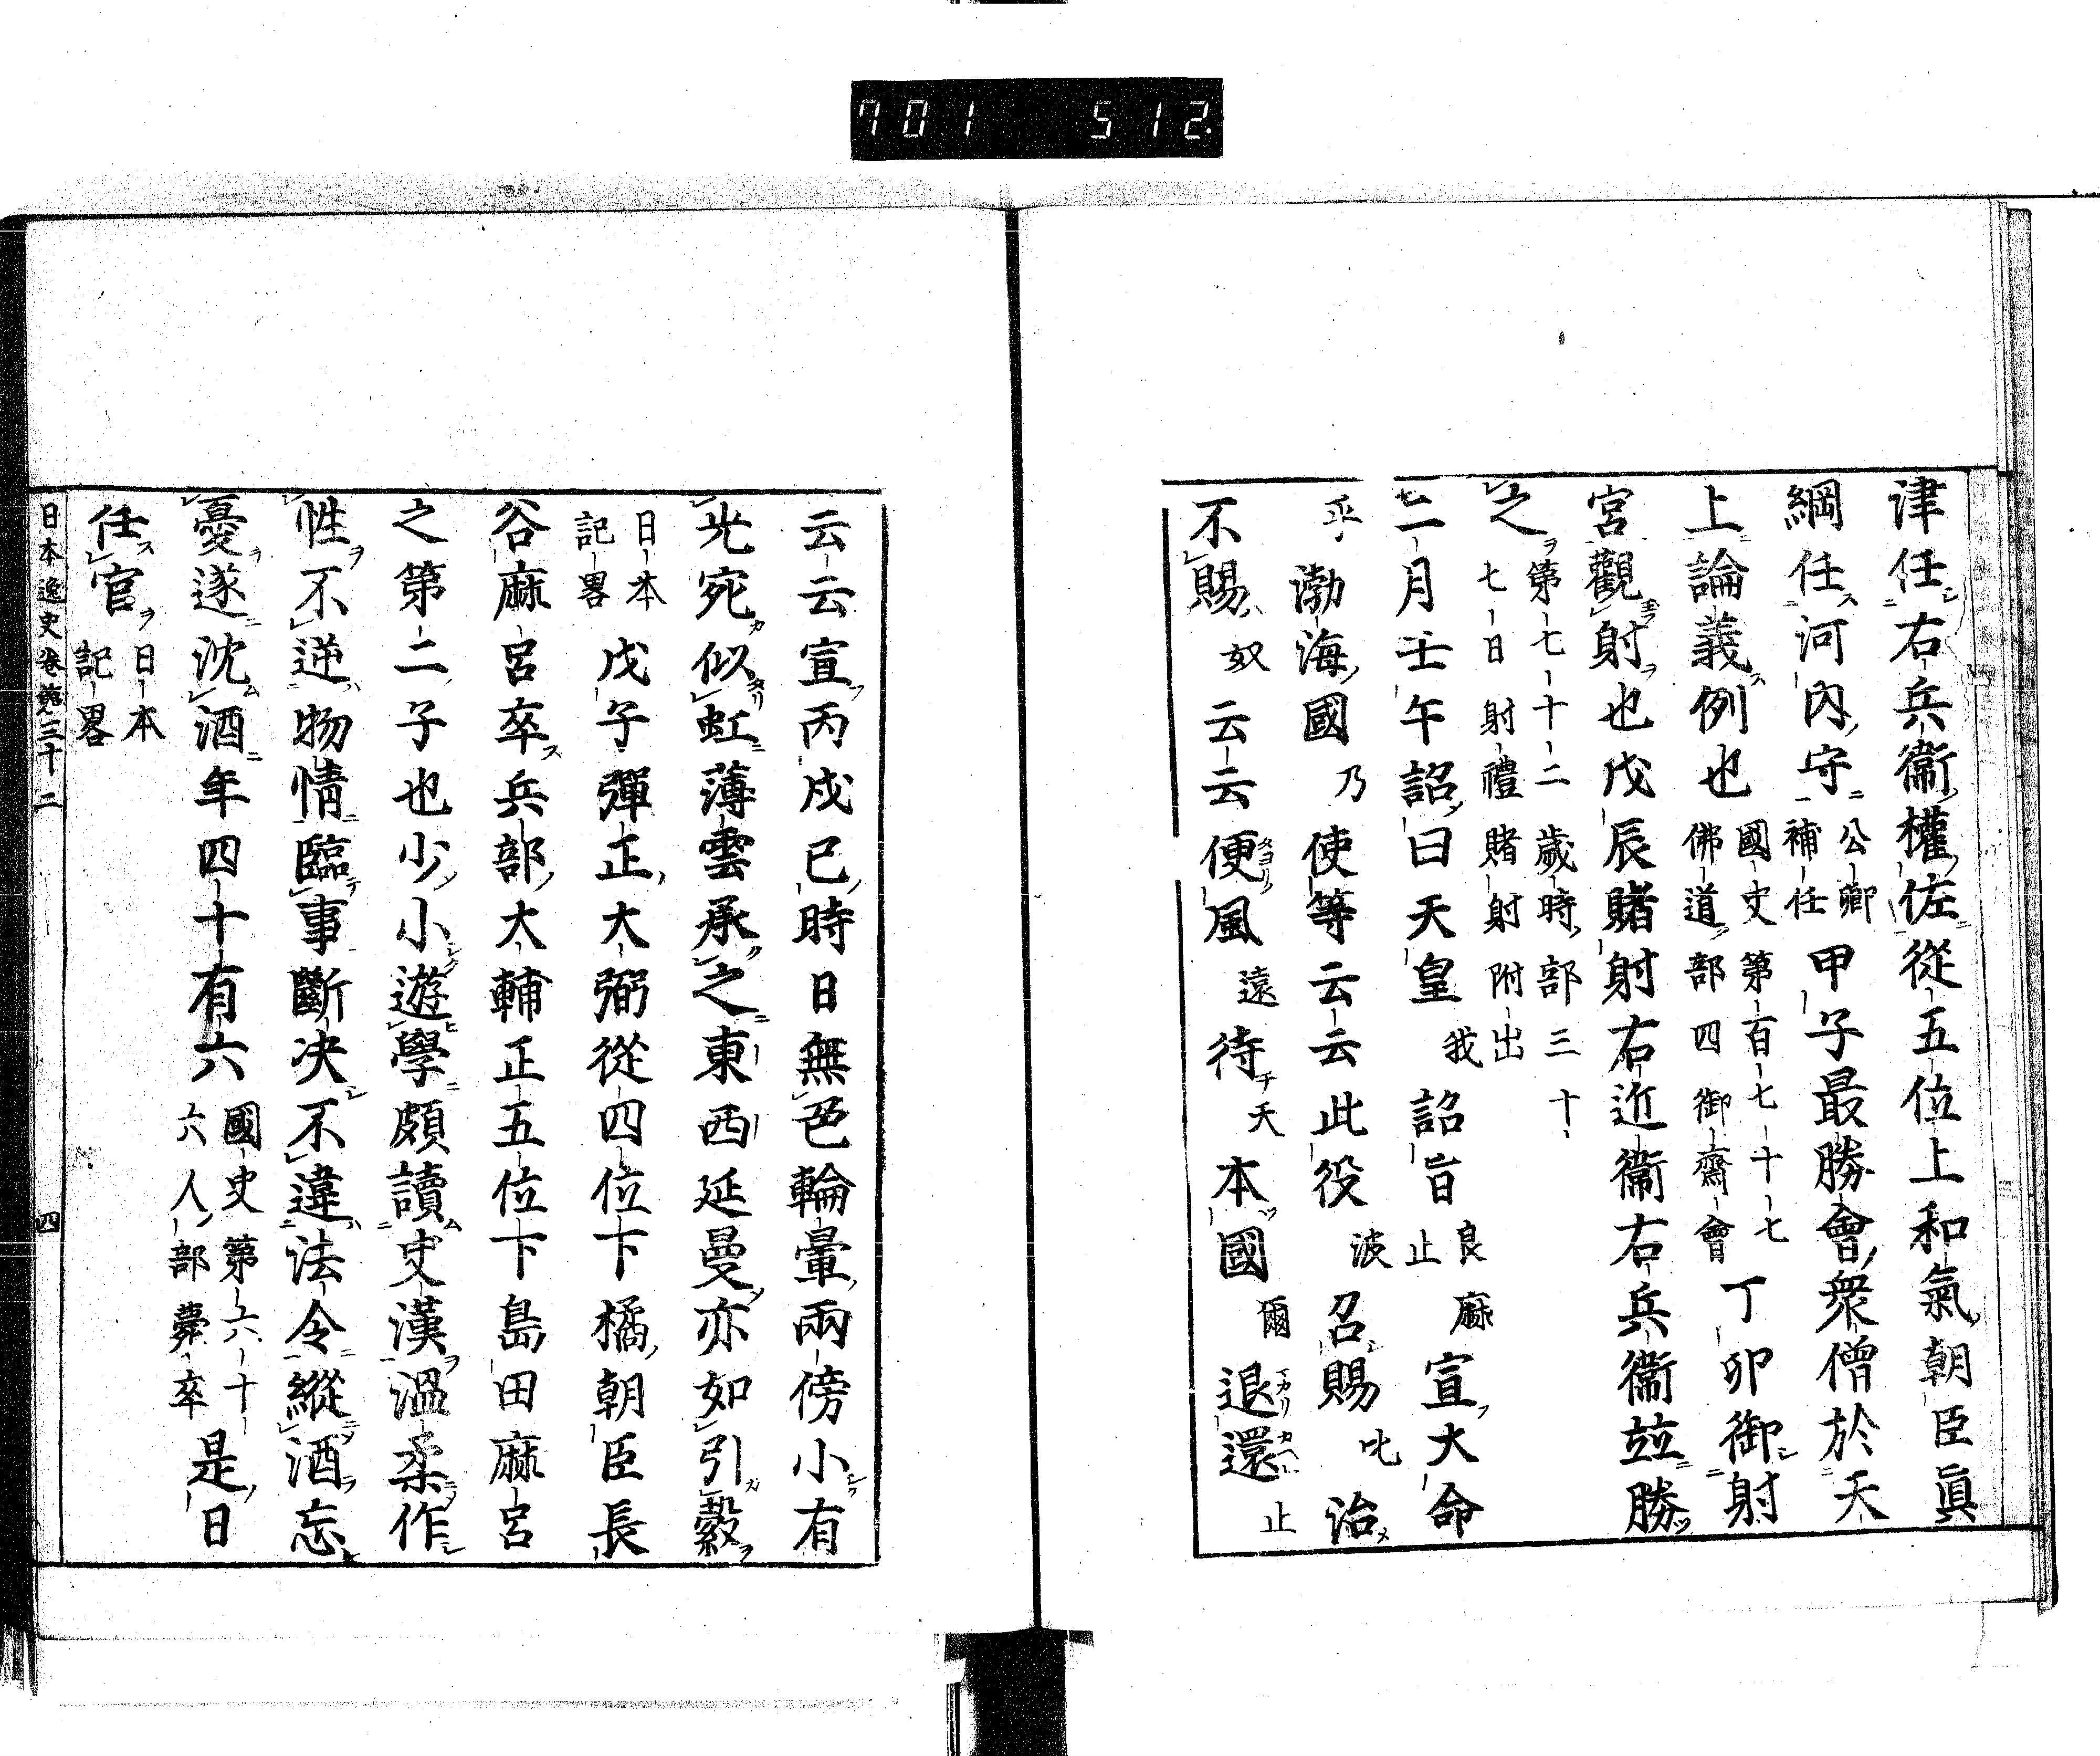 701 512.
津任右兵衞權佐從五位上和氣朝臣眞
綱任河内守公卿補任甲子最勝會衆僧於天
上論義例也國史第百七十七佛道部四御齋會丁卯御射
宮觀射也戊辰賭射右近衞右兵衞竝勝
之第七十二歲時部三十七日射禮賭射附出
二月壬午詔曰天皇我詔旨良麻止宣大命
乎渤海國乃使等云云此役波召賜比治
不賜奴云云便風遠待天本國爾退還止
云云宣丙戌巳時日無芒輪暈兩傍小有
光宛似虹薄雲承之東西延曼亦如引縠
日本記畧戊子彈正大弼從四位下橘朝臣長
谷麻呂卒兵部大輔正五位下島田麻呂
之第二子也少小遊學頗讀史漢溫柔作
性不逆物情臨事斷決不違法令縱酒忘
憂遂沈酒年四十有六國史第六十六人部薨卒是日
任官日本記畧
日本逸史卷第三十二 四